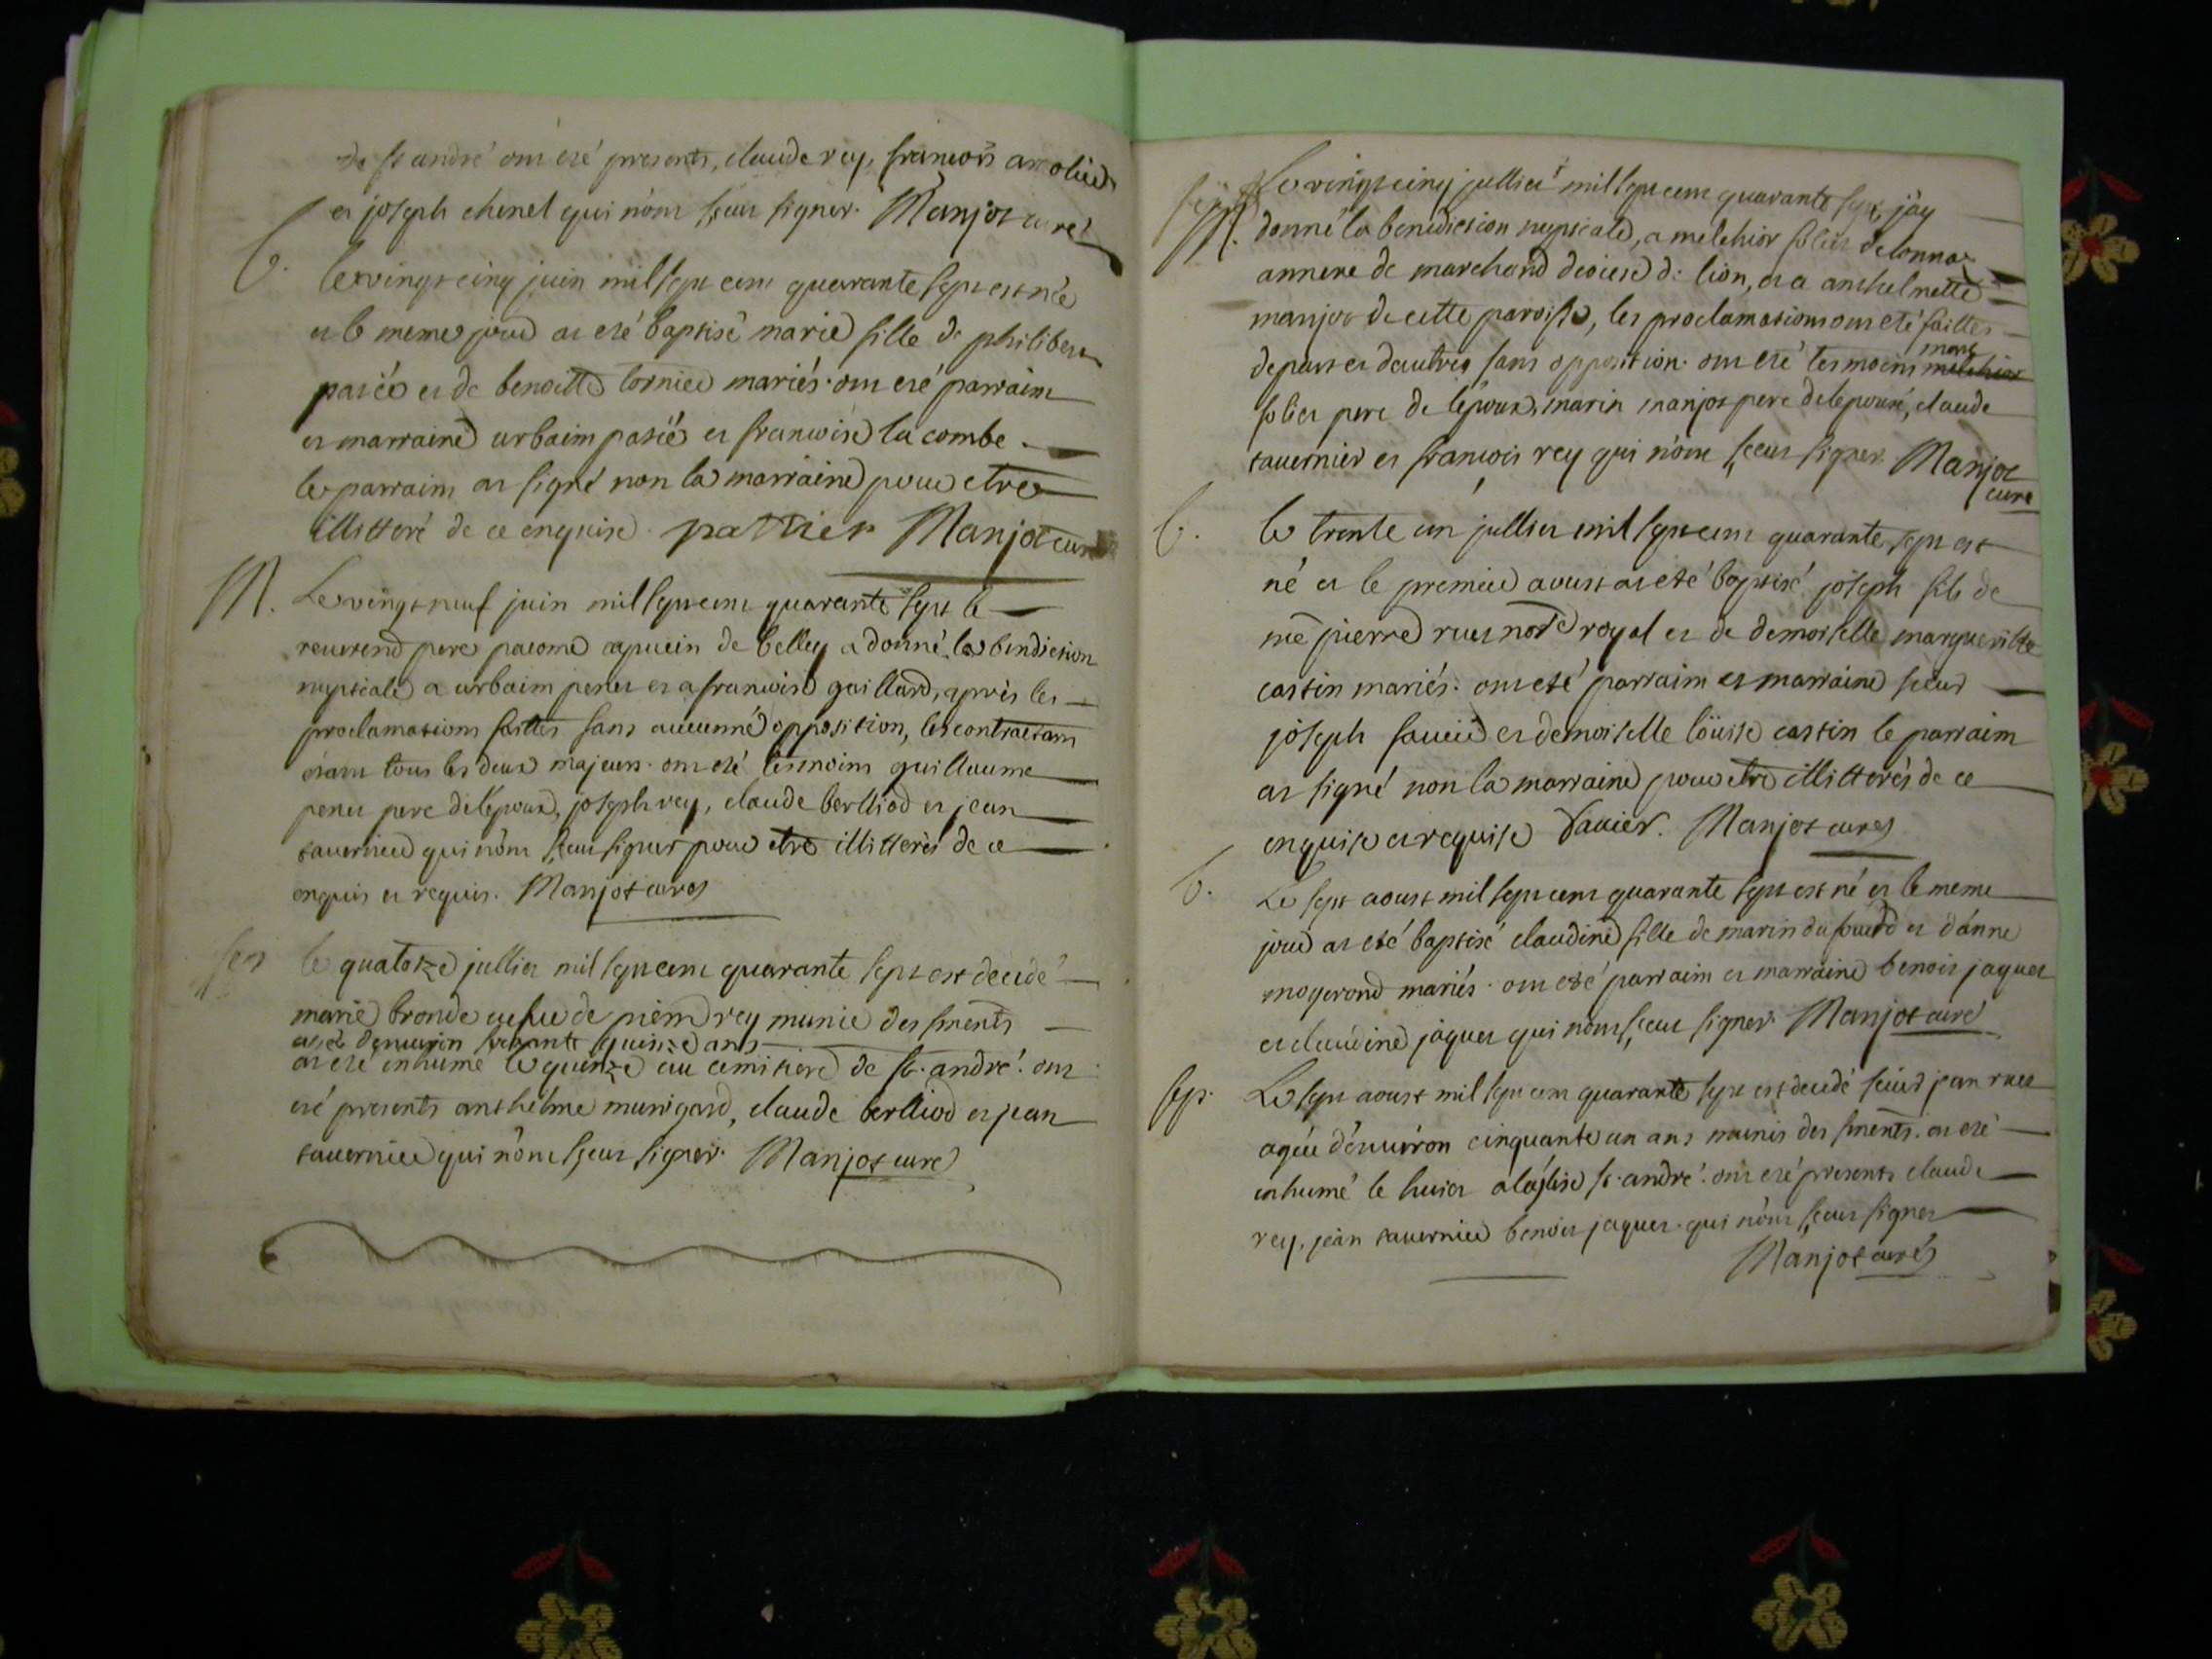 de st andré ont eté presents, claude rey, francois
et joseph chenel qui n'ont sceut signer. Manjot curé
b. le vingt cinq juin mil sept cent quarante sept est née
et le meme jour at eté baptisé marie fille de philibert
patié et de benoitte tornier mariés. ont eté parraim
et marraine urbaim patié et francoise la combe.
le parraim at signé non la marraine pour etre
illitteré de ce enquise. pattier Manjot curé
M. Le vingt neuf juin mil sept cent quarante sept le
reverend pere pacome capucin de belley a donné la bendiction
nuptiale a urbaim penet et a francoise gaillard, après les
proclamations faittes sans aucunne opposition, les contractans
étant tous les deux majeurs. ont eté tesmoins guillaume
penet pere de l'epoux, joseph rey, claude berlliod et jean
tavernier qui n'ont sceut signer pour etre illitterés de ce
enquis et requis. Manjot curé
sep le quatorze julliet mil sept cent quarante sept est decedé
marie bronde veuve de pierre rey munie des sments
agée d'environ soixante quinze ans
at eté inhumé le quinze au cemitiere de st. andré. ont
eté presents anthelme murigard, claude berlliod et jean
tavernier qui n'ont sceut signer. Manjot curé
Le vingt cinq jullier mil sept cent quarante sept, j'ay
M. donné la benediction nuptiale, a melchior soliet de lonnaz
annexe de marchand diocese de lion, et a anthelmette
manjot de cette paroisse, les proclamations ont eté faittes
de part et d'autres sans opposition. ont eté tesmoins melchior
marc
soliet pere de l'époux, marin manjot pere de l'epouse, claude
tavernier et francois rey qui n'ont sceut signer. Manjot
curé
b. le trente un jullier mil sept cent quarante sept est
né et le premier aoust at eté baptisé joseph fils de
me pierre ruet notre royal et de demoiselle margueritte
castin mariés. ont eté parraim et marraine sieur
joseph favier et demoiselle loüise castin le parraim
at signé non la marraine pour etre illitterés de ce
enquise et requise favier. Manjot curé
b. Le sept aoust mil sept cent quarante sept est né et le meme
jour at eté baptisé claudine fille de marin du fourd et d'anne
mogerond mariés. ont eté parraim et marraine benoit jaquet
et claudine jaquet qui n'ont sceut signer. Manjot curé
sep. Le sept aoust mil sept cent quarante sept est decedé sieur jean ruet
agée d'environ cinquante un ans munis des sments. at eté
inhumé le huict a l'église st. andré. ont eté presents claude
rey, jean tavernier benoit jaquet. qui n'ont sceut signer
Manjot curé